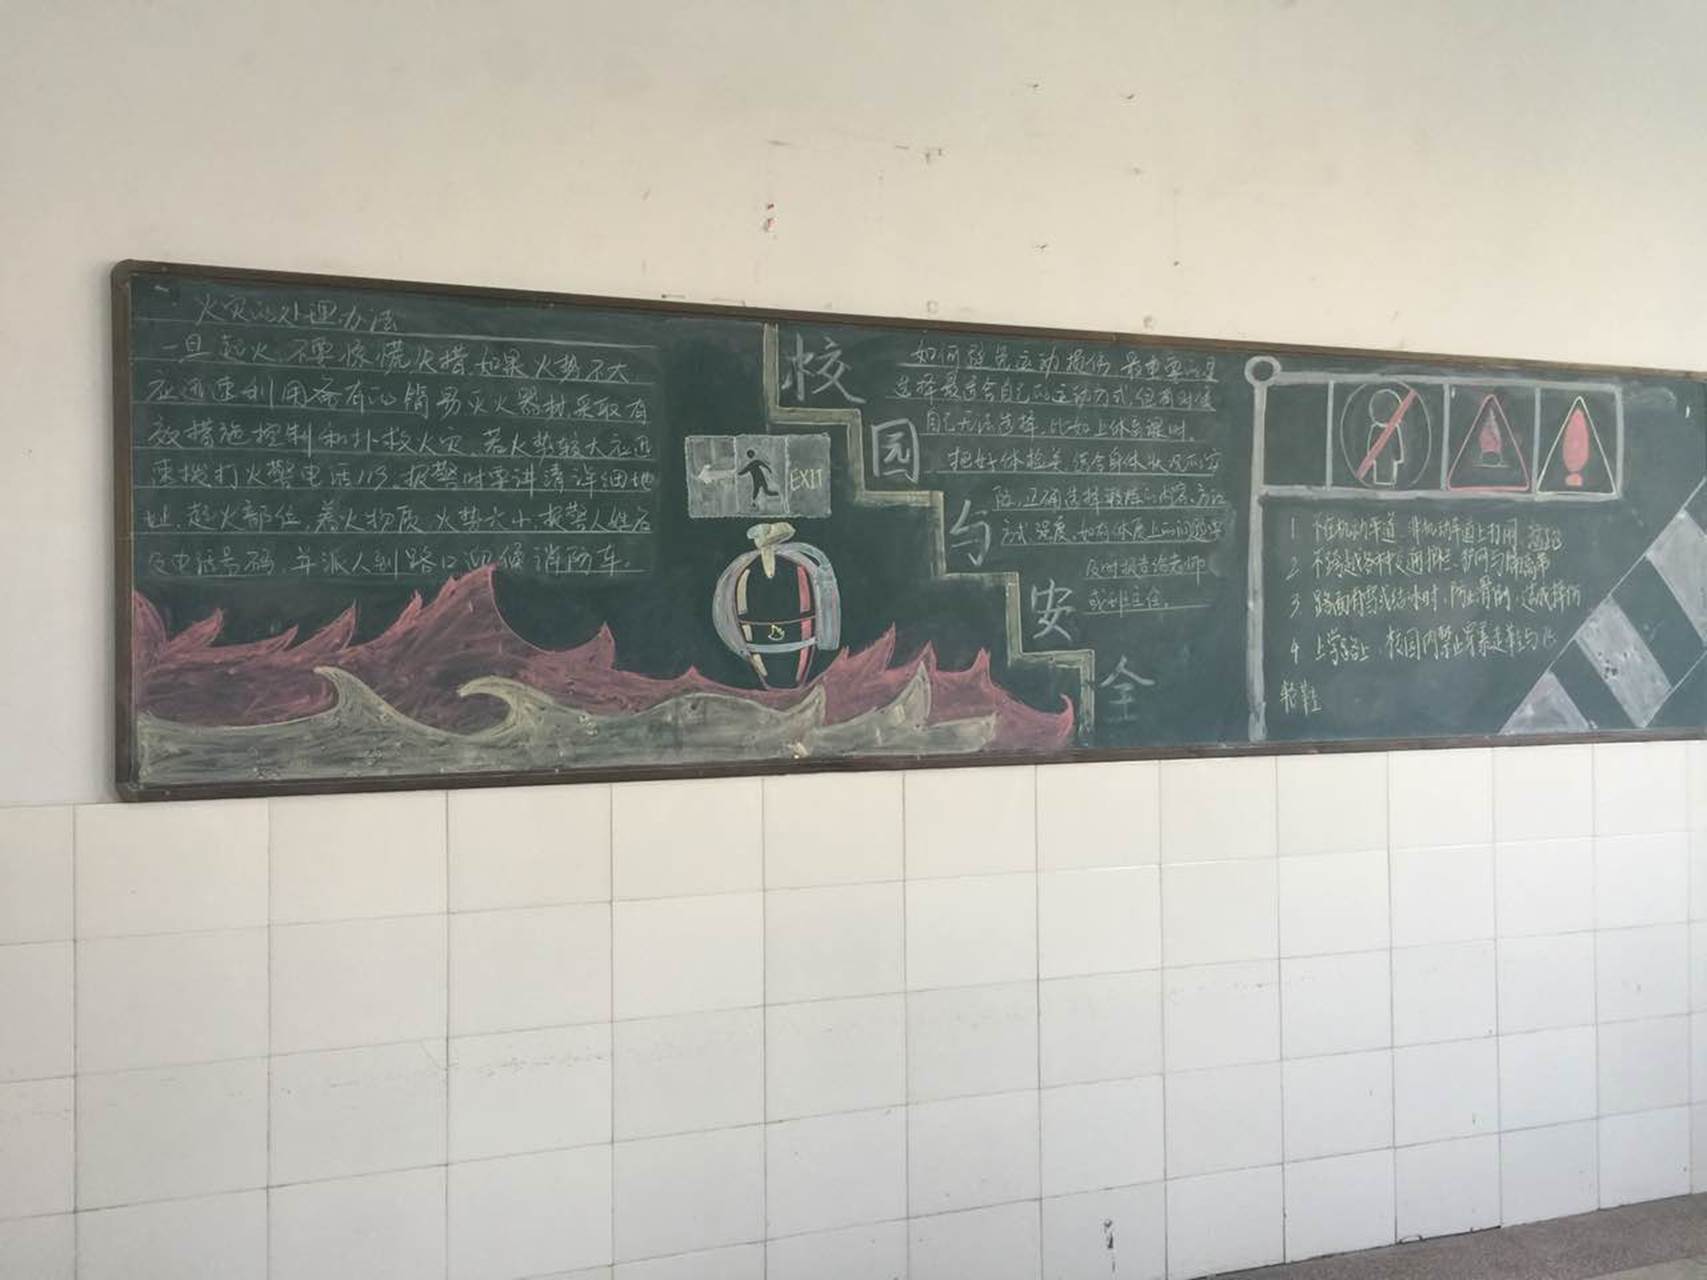 火灾的处理办法
一旦起火,不要惊慌失措,如果火势不大
应迅速利用备有的简易灭火器材,采取有
效措施控制和扑救火灾。若火势较大应迅
速拨打火警电话119,报警时要讲清详细地
址,起火部位,着火物质,火势大小,报警人姓名
及电话号码,并派人到路口迎候消防车。
EXIT
校
园
与
安
全
如何避免运动损伤 最重要的是
选择最适合自己的运动方式,但有时候
自己无法选择,比如上体育课时。
把好体检关,结合身体状况的实
际,正确选择锻炼的内容、方法
方式强度,如有体质上的问题要
及时报告给老师
或班主任。
1 不在机动车道、非机动车道上打闹、追跑
2 不跨越各种交通护栏、护网与隔离带
3 路面有雪或结冰时,防止滑倒,造成摔伤
4 上学路上、校园内禁止穿暴走鞋与飞
轮鞋